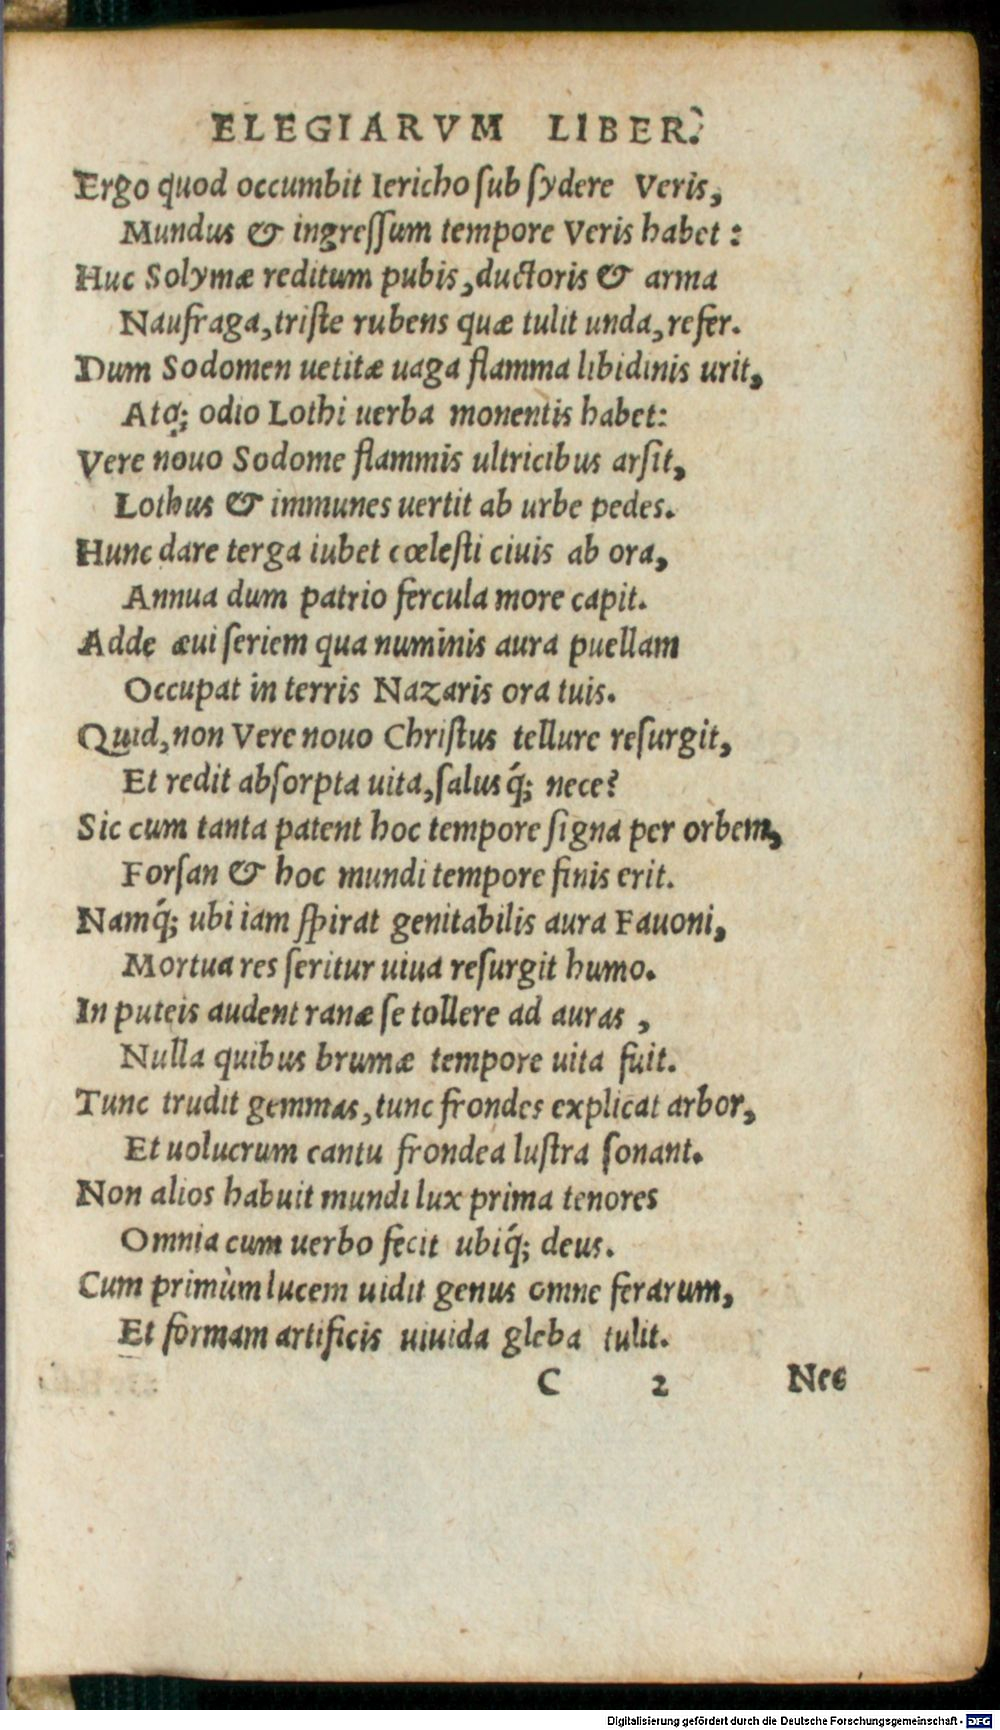 ELEGIARVM LIBER.
Ergo quod occumbit Iericho ſub ſydere Veris,
Mundus & ingreſſum tempore Veris habet:
Huc Solymæ reditum pubis, ductoris & arma
Naufraga, triſte rubens quæ tulit unda, refer.
Dum Sodomen uetitæ uaga flamma libidinis urit,
Atq; odio Lothi uerba monentis habet:
Vere nouo Sodome flammis ultricibus arſit,
Lothus & immunes uertit ab urbe pedes.
Hunc dare terga iubet cœleſti ciuis ab ora,
Annua dum patrio fercula more capit.
Adde æui ſeriem qua numinis aura puellam
Occupat in terris Nazaris ora tuis.
Quid, non Vere nouo Chriſtus tellure reſurgit,
Et redit abſorpta uita, ſalusq́; nece?
Sic cum tanta patent hoc tempore ſigna per orbem,
Forſan & hoc mundi tempore finis erit.
Namq́; ubi iam ſpirat genitabilis aura Fauoni,
Mortua res ſeritur uiua reſurgit humo.
In puteis audent ranæ ſe tollere ad auras,
Nulla quibus brumæ tempore uita fuit.
Tunc trudit gemmas, tunc frondes explicat arbor,
Et uolucrum cantu frondea luſtra ſonant.
Non alios habuit mundi lux prima tenores
Omnia cum uerbo fecit ubiq́; deus.
Cum primùm lucem uidit genus omne ferarum,
Et formam artificis uiuida gleba tulit.
C 2 Nec
Digitalisierung gefördert durch die Deutsche Forschungsgemeinschaft - DFG